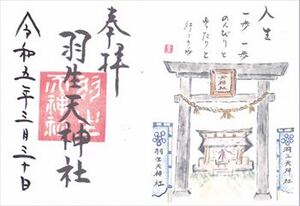 奉拝
羽生天神社
令和五年三月三十日
人生
一歩一歩
のんびりと
ゆたりと
行こうや
天神社
羽生天神社
羽生天神社